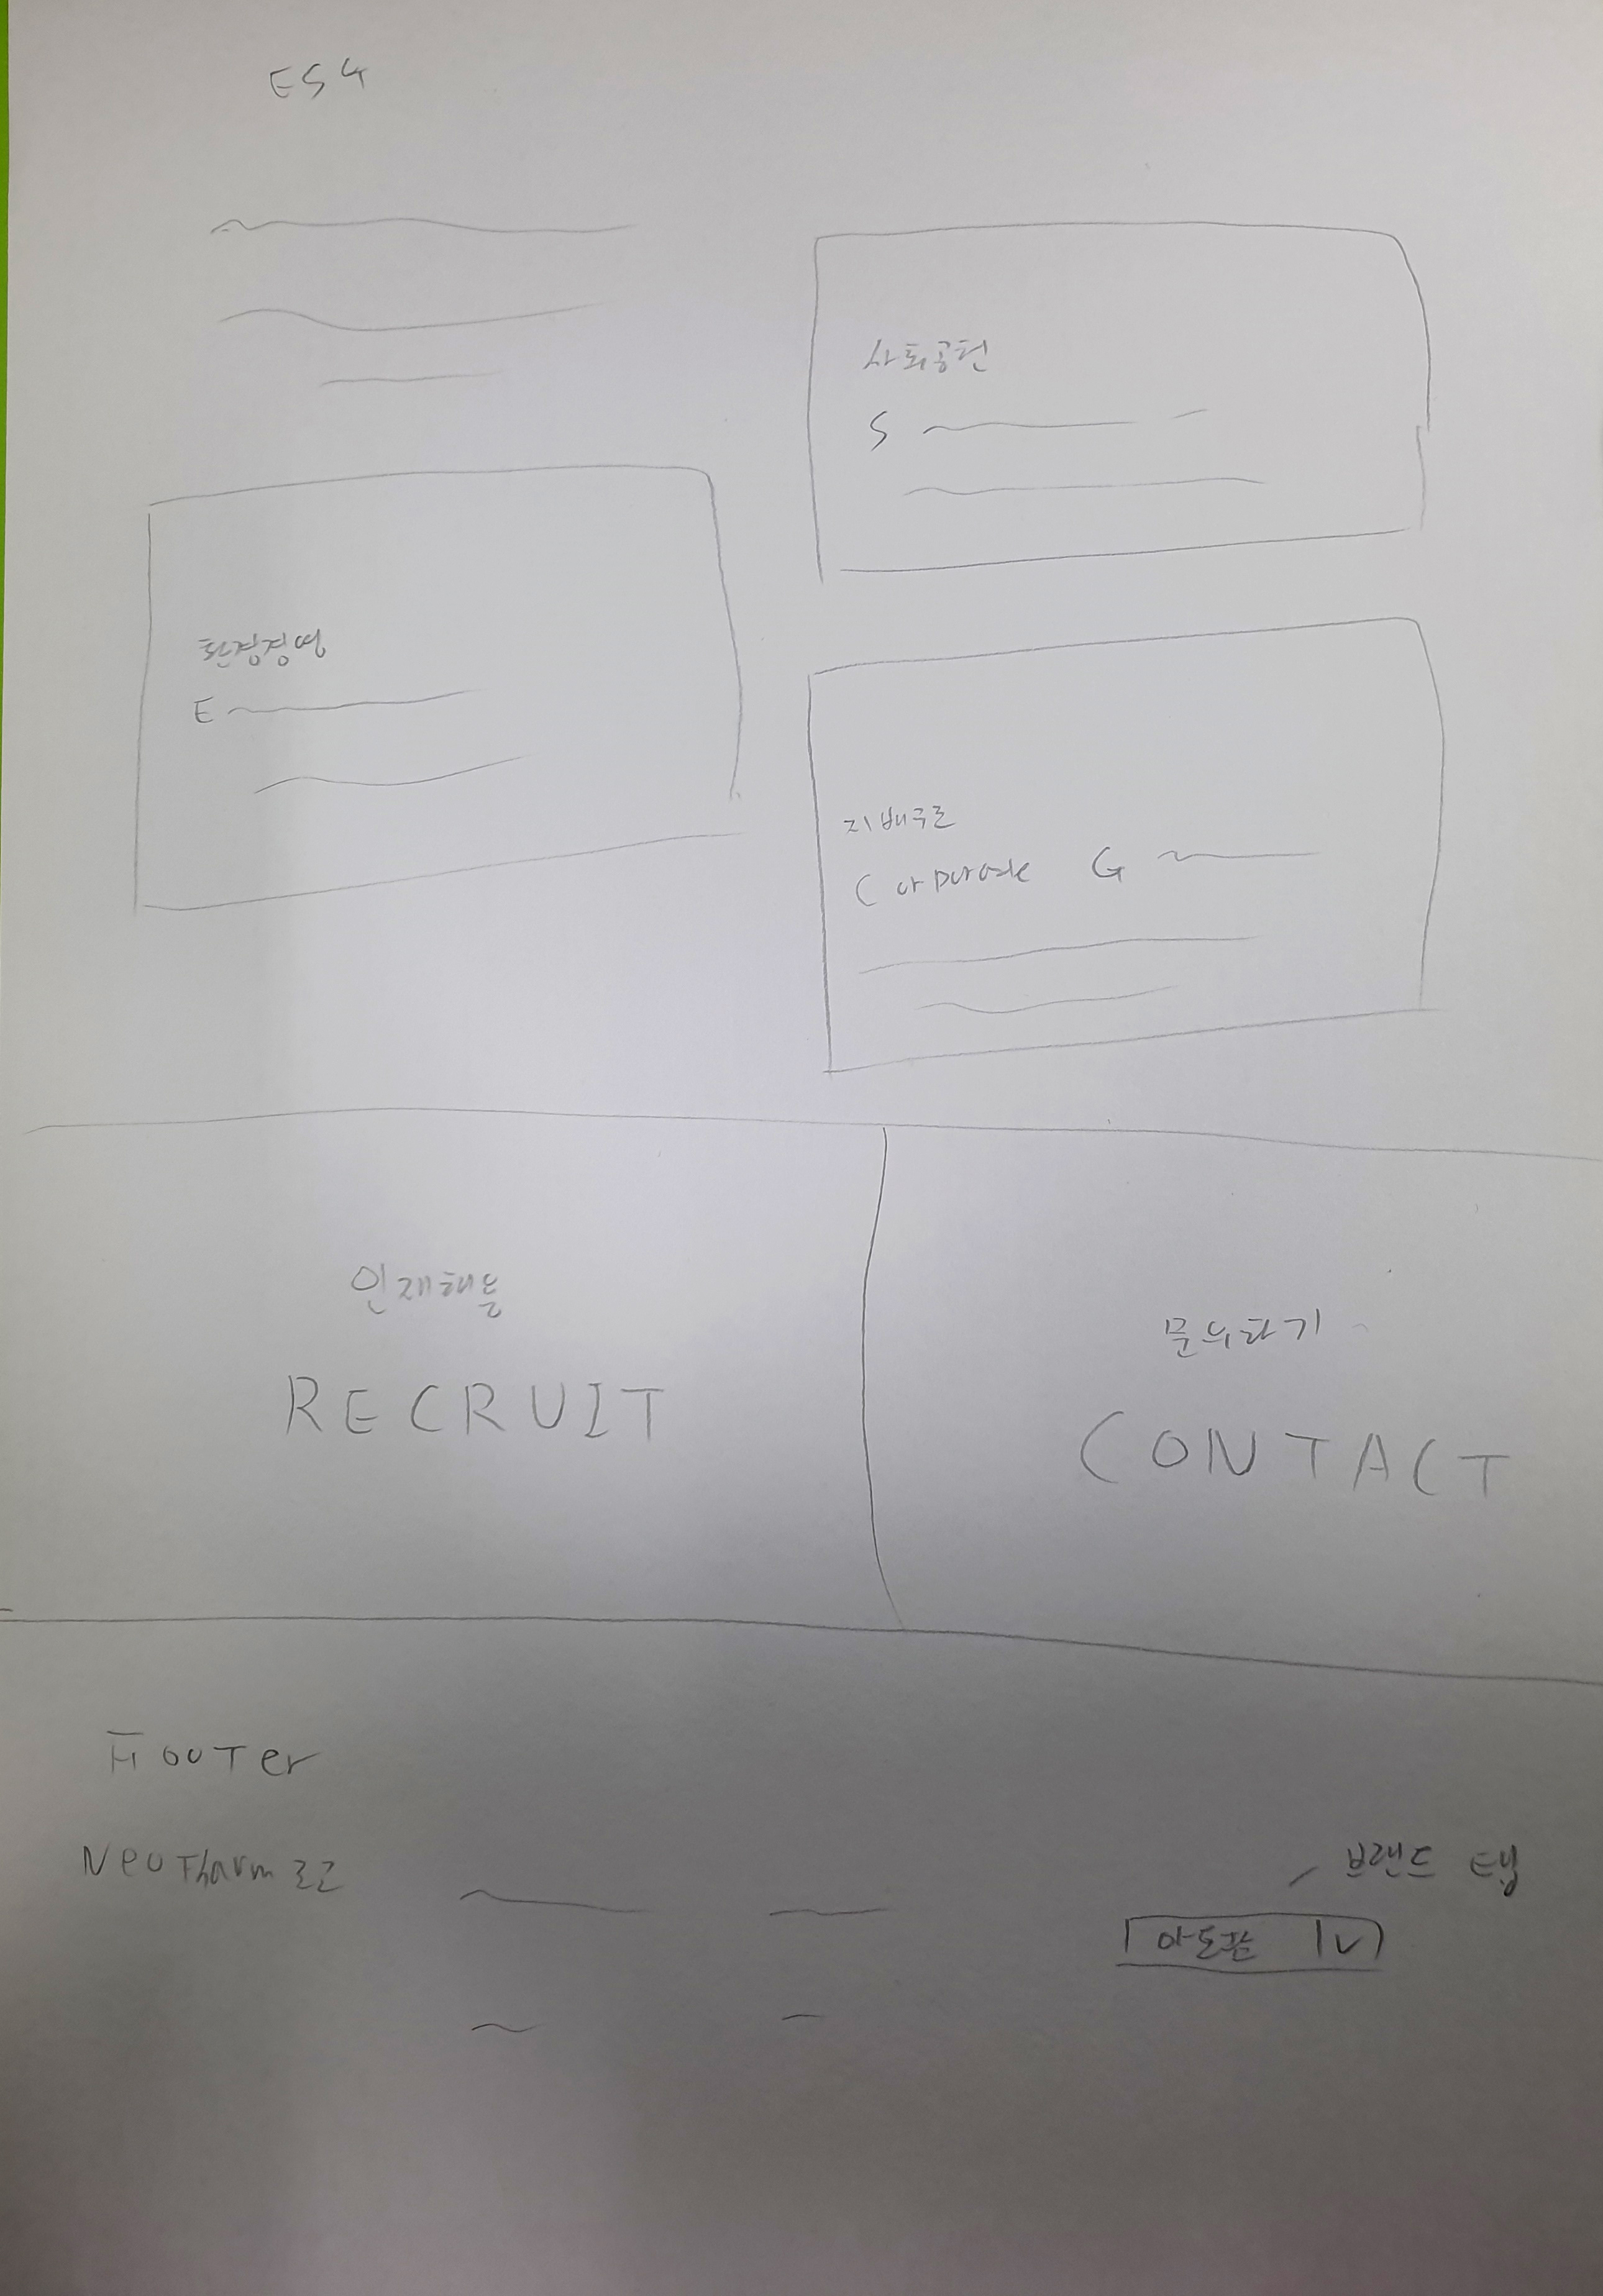 ESG
사회공헌
S
환경경영
E
지배구조
Corporate G
인재채용
RECRUIT
문의하기
CONTACT
Footer
NeoPharm 로고
브랜드 탭
아토팜 V